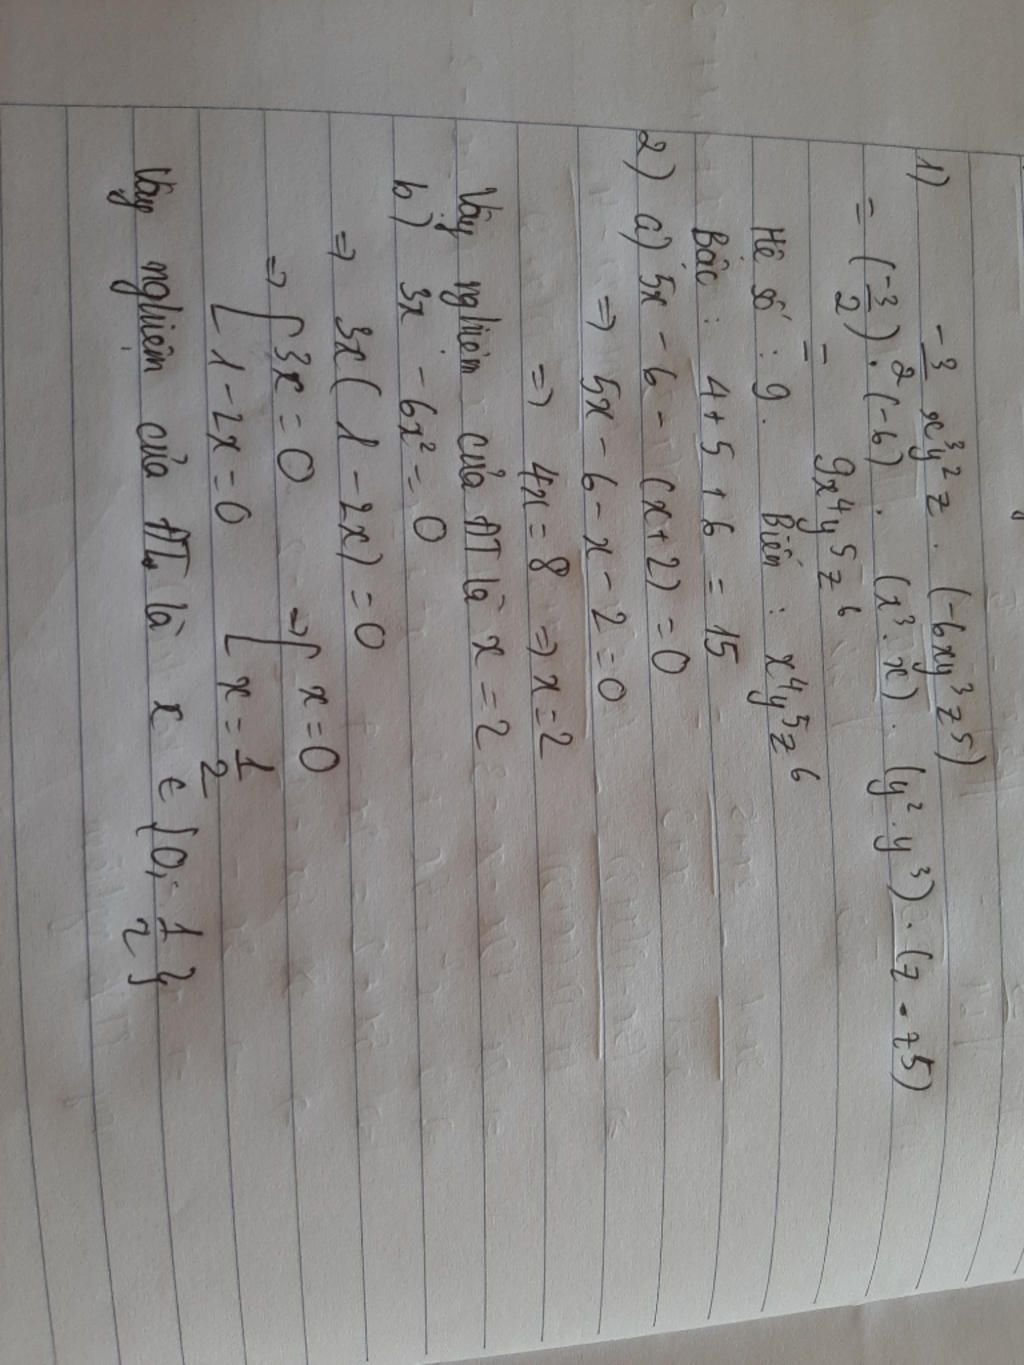 1) -3/2 x³y²z . (-6xy³z⁵)
= (-3/2) . (-6) . (x³.x) . (y².y³) . (z.z5)
= 9x⁴y⁵z⁶
Hệ số : 9. Biến : x⁴y⁵z⁶
Bậc : 4+5+6 = 15
2) a) 5x - 6 - (x+2) = 0
=> 5x - 6 - x - 2 = 0
=> 4x = 8 => x = 2
Vậy nghiệm của ĐT là x = 2
b) 3x - 6x² = 0
=> 3x(1 - 2x) = 0
=> [3x = 0 => [x = 0
[1 - 2x = 0 [x = 1/2
Vậy nghiệm của ĐT là x ∈ {0; 1/2}